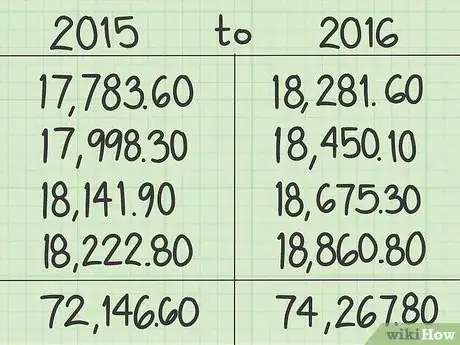 2015 to 2016
17,783.60 18,281.60
17,998.30 18,450.10
18,141.90 18,675.30
18,222.80 18,860.80
72,146.60 74,267.80
wikiHow